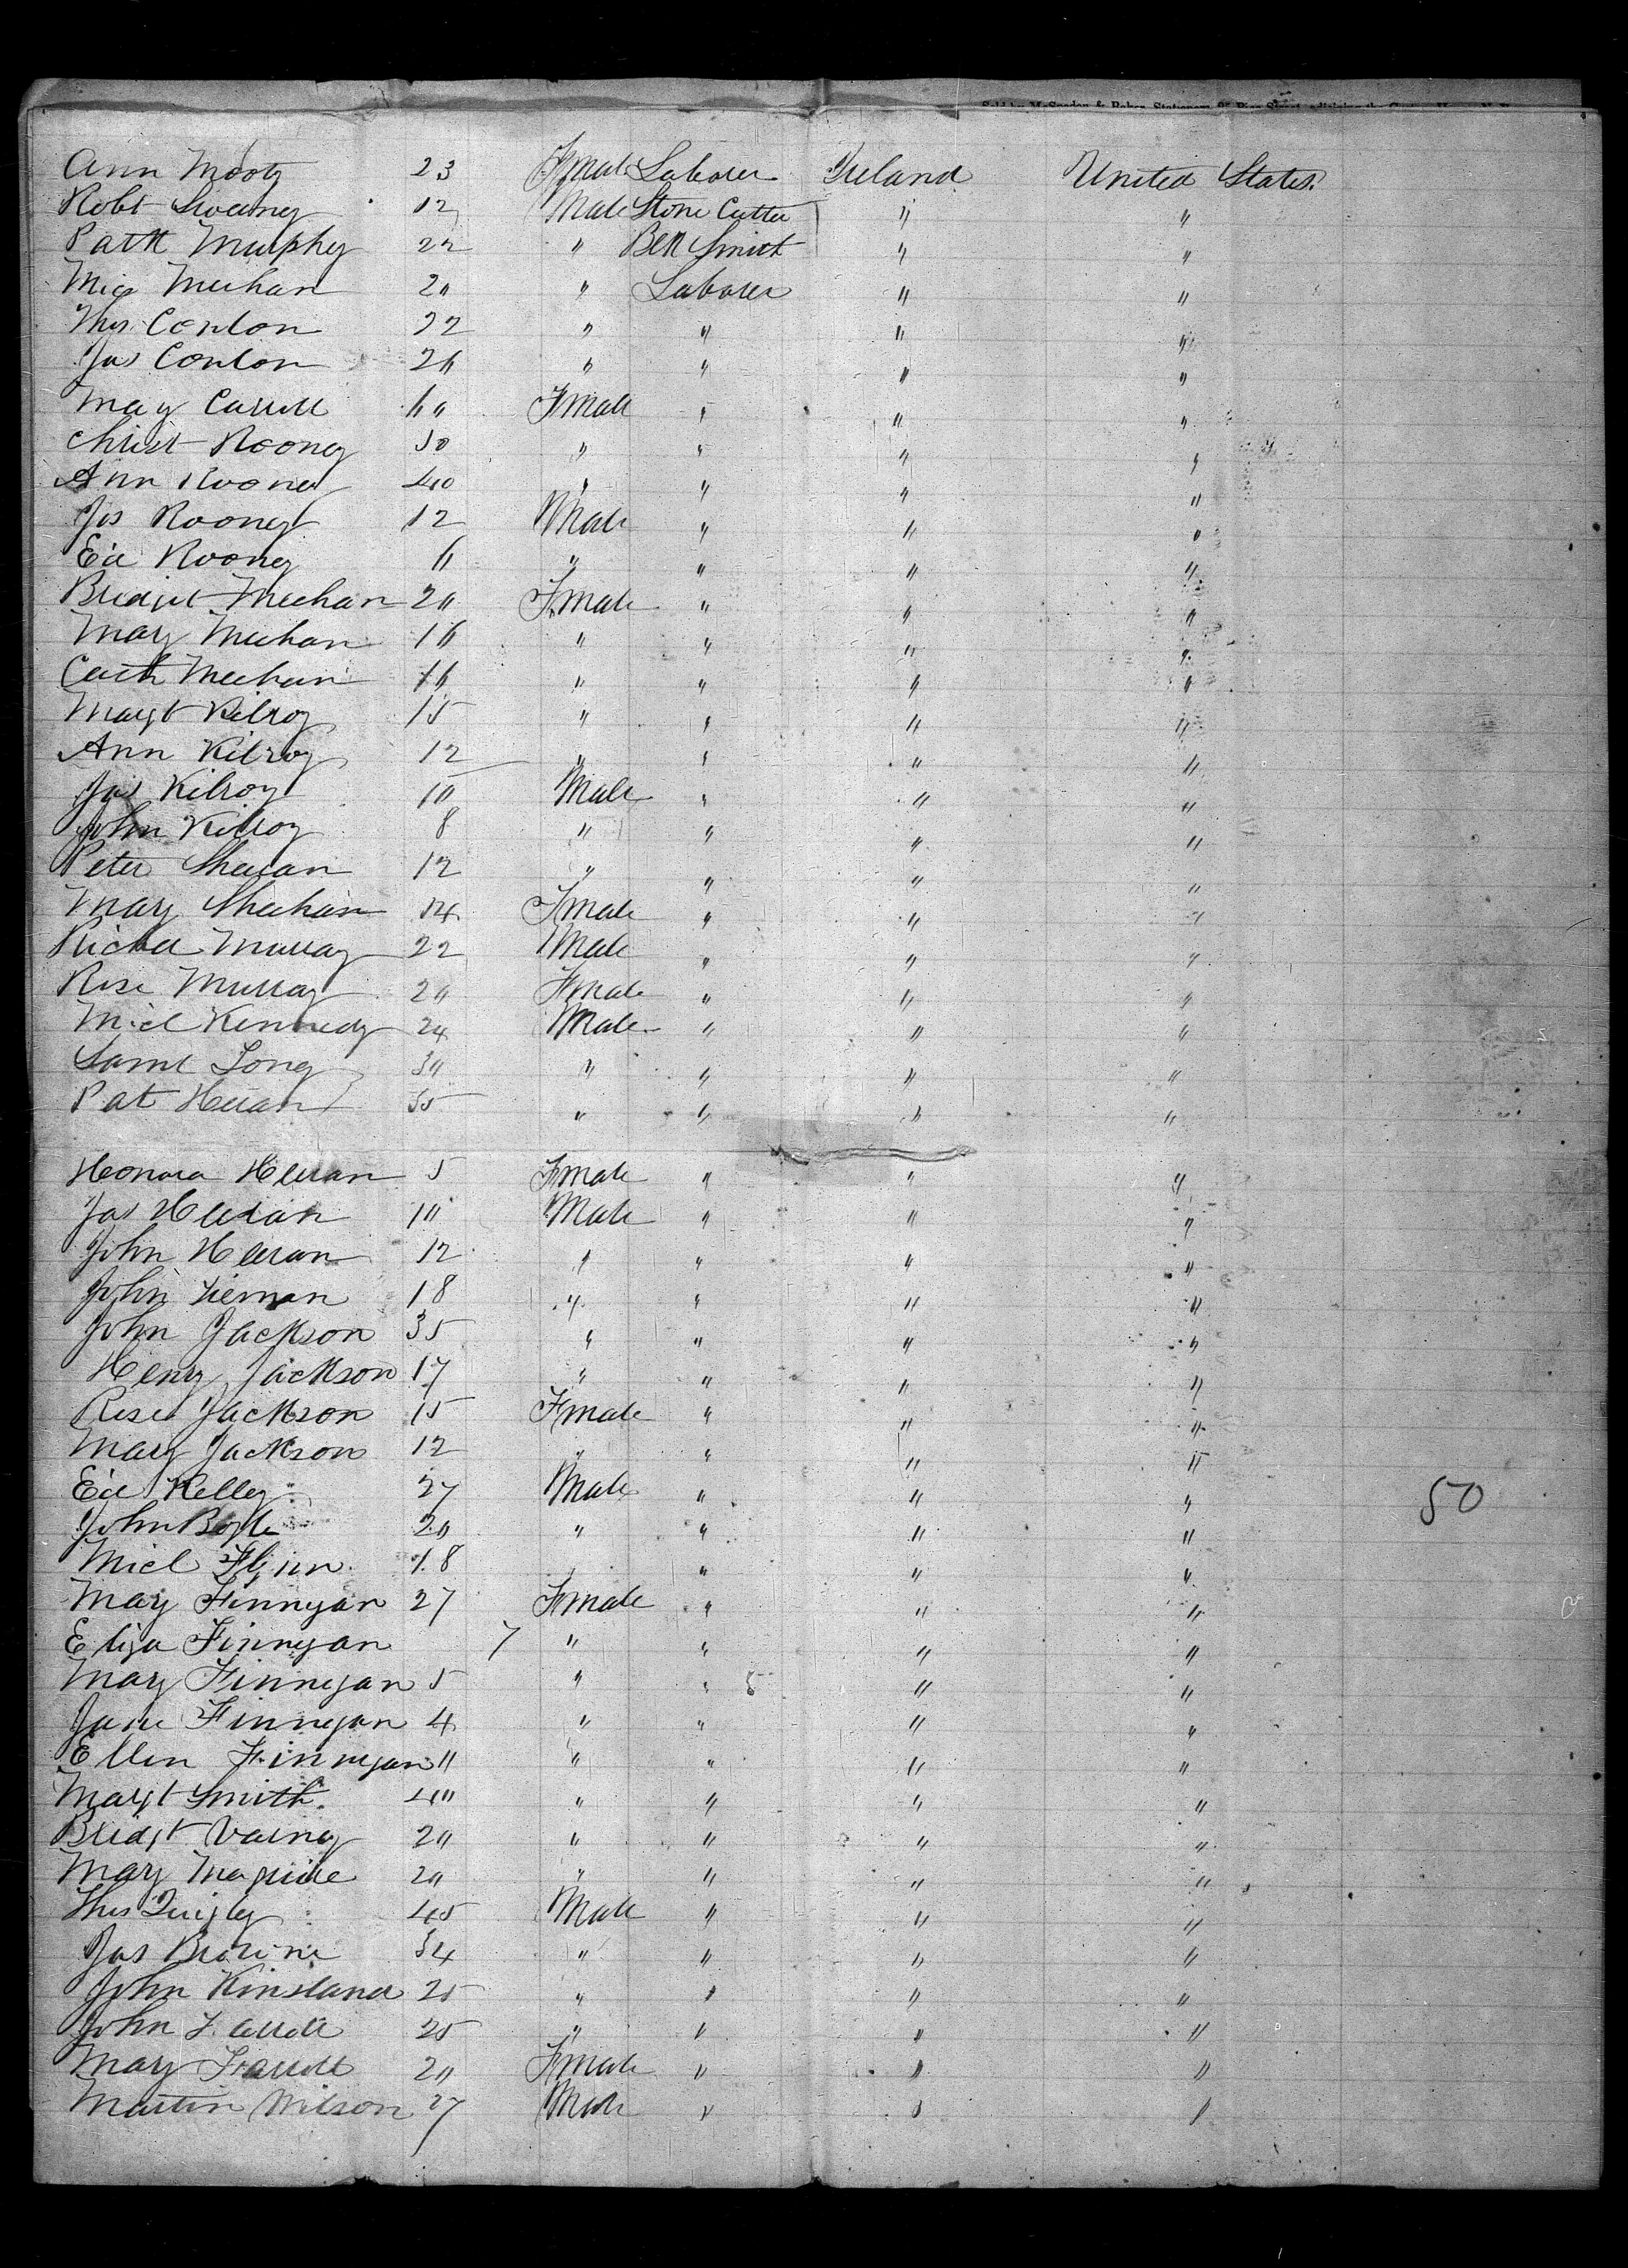 Sold by McSpedon & Baker, Stationers, 25 Pine Street, adjoining the Custom House, N.Y.
Ann 23 Fmale Laborer Ireland United States.
Robt Sweeney 12 Male Stone Cutter " "
Patk Murphy 22 " Blk Smith " "
Mic Meehan 20 " Laborer " "
Thos Conlon 22 " " " "
Jas Conlon 26 " " " "
Mary Carroll 60 Fmale " " "
Christ Rooney 50 " " " "
Ann Rooney 40 " " " "
Jas Rooney 12 Male " " "
Ed Rooney 11 " " " "
Bridget Meehan 20 Fmale " " "
Mary Meehan 16 " " " "
Cath Meehan 16 " " " "
Margt Kilroy 15 " " " "
Ann Kilroy 12 " " " "
Jas Kilroy 10 Male " " "
John Kilroy 8 " " " "
Peter 12 " " " "
Mary Sheehan 14 Fmale " " "
Richd Murray 22 Male " " "
Rose Murray 20 Fmale " " "
Micl Kennedy 24 Male " " "
Saml Long 30 " " " "
Pat Heeran 35 " " " "
Honora Heeran 5 Fmale " " "
Jas Heeran 10 Male " " "
John Heeran 12 " " " "
John Tiernan 18 " " " "
John Jackson 35 " " " "
Henry Jackson 17 " " " "
Rose Jackson 15 Fmale " " "
Mary Jackson 12 " " " "
Ed Kelley 27 Male " " " 50
John Boyle 20 " " " "
Micl Flynn 18 " " " "
Mary Finnegan 27 Fmale " " "
Eliza Finnegan 7 " " " "
Mary Finnegan 5 " " " "
Jane Finnegan 4 " " " "
Ellen Finnegan 11 " " " "
Margt Smith 40 " " " "
Bridgt 20 " " " "
Mary Maguire 20 " " " "
Thos Quigley 45 Male " " "
Jas 34 " " " "
John Kinsland 25 " " " "
John Farrell 25 " " " "
Mary Farrell 20 Fmale " " "
Martin Wilson 27 Male " " "